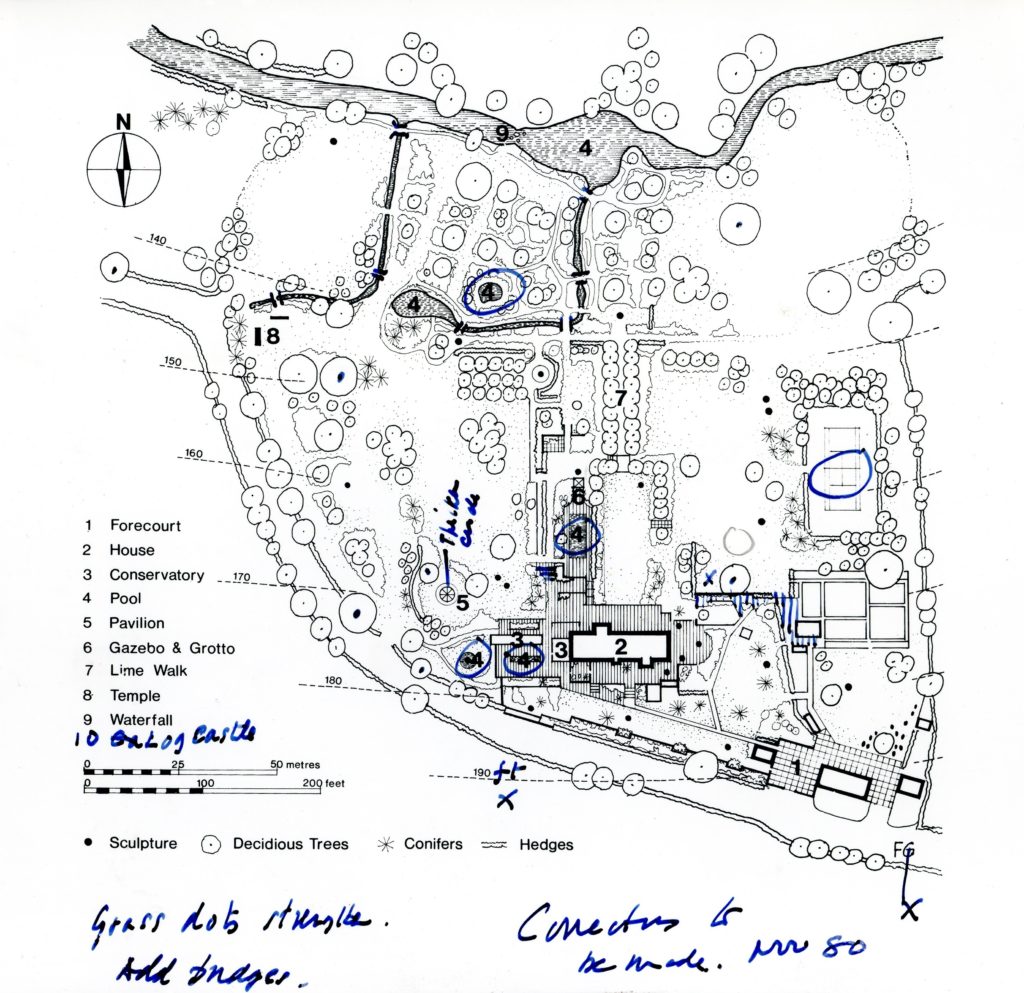 N
9
4
140
4
4
8
150
7
160
6
4
Thicken
circle
1 Forecourt
2 House
3 Conservatory
4 Pool
5 Pavilion
6 Gazebo & Grotto
7 Lime Walk
8 Temple
9 Waterfall
10 Castle
170
5
3
3
2
4
4
180
190 ft
x
x
1
0 25 50 metres
0 100 200 feet
Sculpture Decidious Trees Conifers Hedges
FG
X
Grass dots strengthen.
Add bridges.
Corrections to
be made. Nov 80